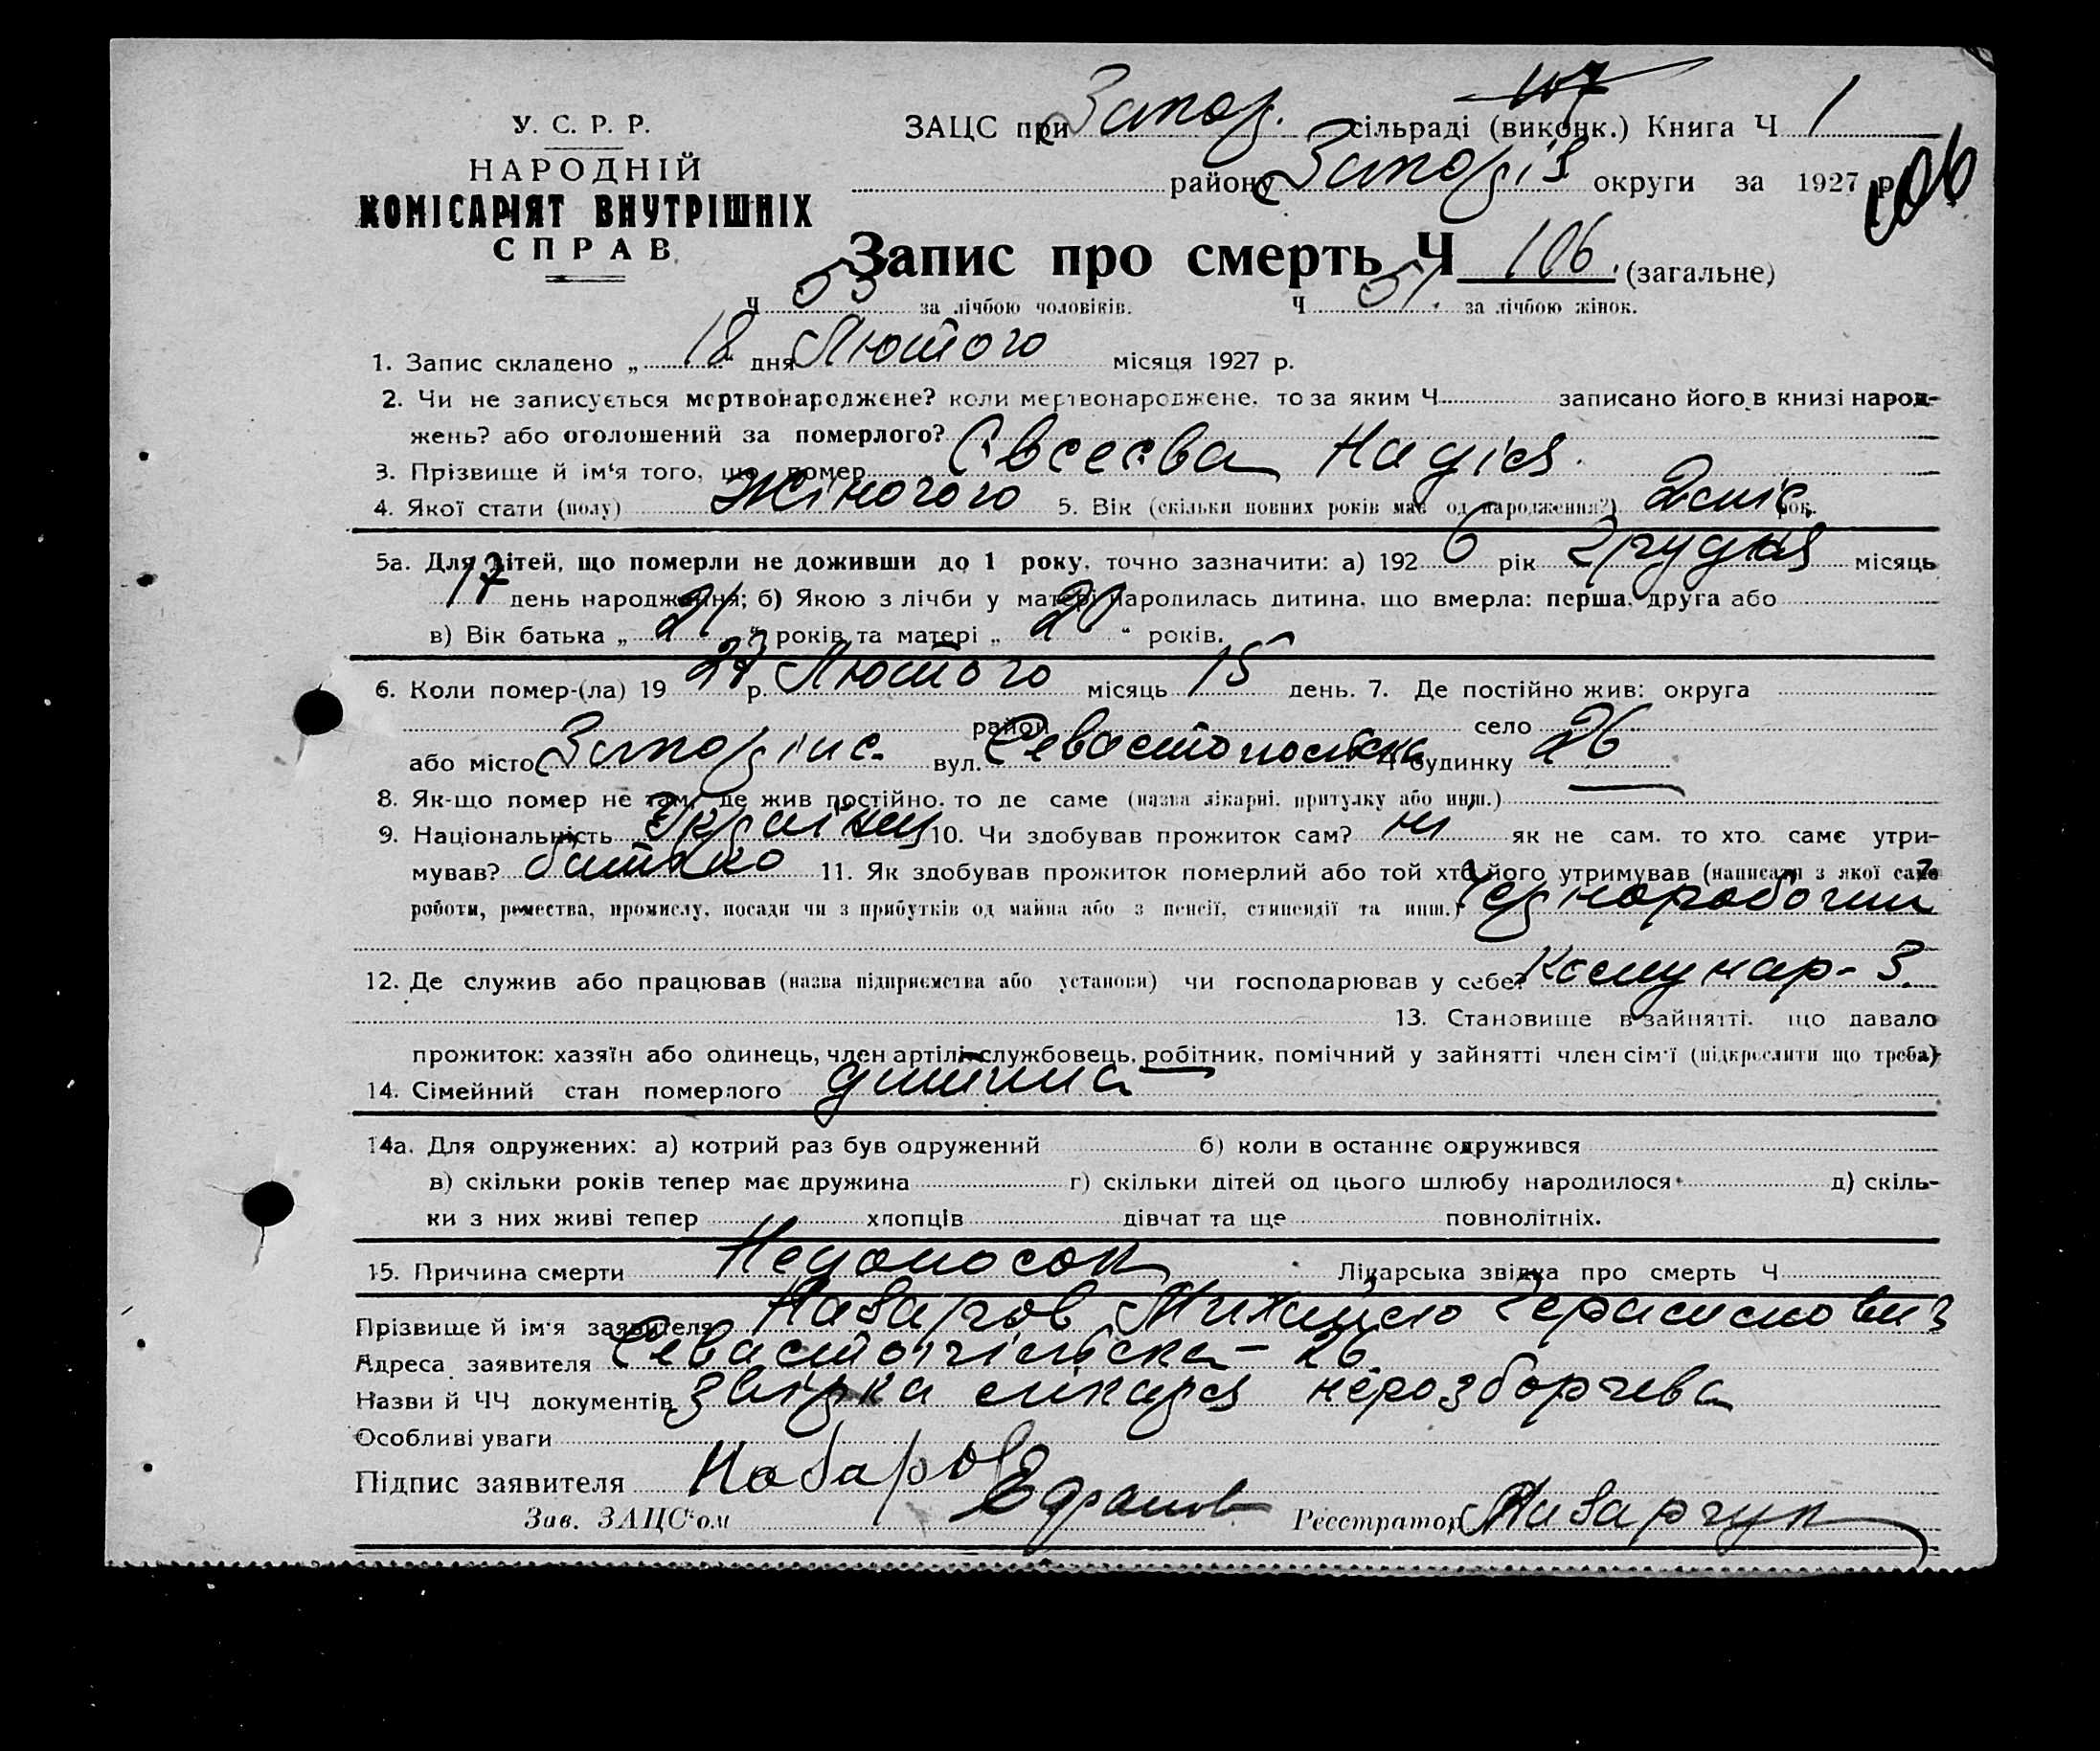 У. С. Р. Р.
НАРОДНІЙ
КОМІСАРІЯТ ВНУТРІШНІХ
СПРАВ.
107
ЗАЦС при Запор. сільраді (виконк.) Книга Ч 1
району Запоріз округи за 1927 р.
106
Запис про смерть Ч 106. (загальне)
Ч 55 за лічбою чоловіків. Ч 51. за лічбою жінок.
1. Запис складено „ 18 " дня Лютого місяця 1927 р.
2. Чи не записується мертвонароджене? коли мертвонароджене, то за яким Ч записано його в книзі народ-
жень? або оголошений за померлого?
3. Прізвище й ім'я того, що помер Євсеєва Надія.
4. Якої стати (полу) Жіночого 5. Вік (скільки повних років мав од народження?) 2 міс. рок.
5а. Для дітей, що померли не доживши до 1 року, точно зазначити: а) 192 6 рік Грудня місяць
17 день народження; б) Якою з лічби у матері народилась дитина, що вмерла: перша, друга або
в) Вік батька „ 21 " років та матері „ 20 " років.
6. Коли помер-(ла) 19 27 р. Лютого місяць 15 день. 7. Де постійно жив: округа
район село
або місто Запоріжє вул. Севастопольска Ч будинку 26
8. Як-що помер не там, де жив постійно, то де саме (назва лікарні, притулку або инш.)
9. Національність Україн 10. Чи здобував прожиток сам? ні як не сам, то хто саме утри-
мував? батько 11. Як здобував прожиток померлий або той хто його утримував (написати з якої саме
роботи, ремества, промислу, посади чи з прибутків од майна або з пенсії, стипендії та инш.) Чорноробочим
12. Де служив або працював (назва підприємства або установи) чи господарював у себе? Комунар- З.
13. Становище в зайнятті, що давало
прожиток: хазяїн або одинець, член артілі, службовець, робітник, помічний у зайнятті член сім'ї (підкреслити що треба)
14. Сімейний стан померлого дитина
14а. Для одружених: а) котрий раз був одружений б) коли в останнє одружився
в) скільки років тепер має дружина г) скільки дітей од цього шлюбу народилося д) скіль-
ки з них живі тепер хлопців дівчат та ще повнолітніх.
15. Причина смерти Недоносок Лікарська звідка про смерть Ч
Прізвище й ім'я заявителя Назаров Михайло Герасимович
Адреса заявителя Севастопільска - 26.
Назви й ЧЧ документів звідка лікаря нерозборчева
Особливі уваги
Підпис заявителя Назаров
Зав. ЗАЦС'ом Реєстратор Назарчук